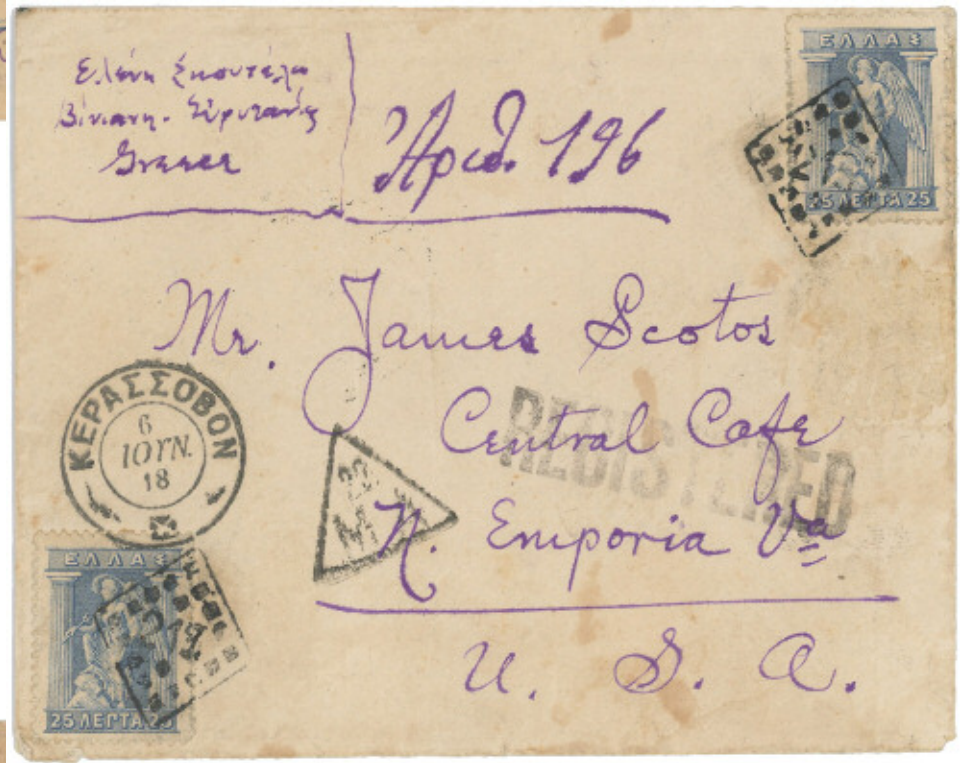 Ελένη Σκουτέλα
Βίνιανη. Εὐρυτανίας
Greece
Ἀριθ. 196
ΕΛΛΑΣ
25 ΛΕΠΤΑ 25
Mr. James Scotos
Central Cafe
REGISTERED
N. Emporia Va
U. S. A.
ΚΕΡΑΣΣΟΒΟΝ
6
ΙΟΥΝ.
18
ΕΛΛΑΣ
25 ΛΕΠΤΑ 25